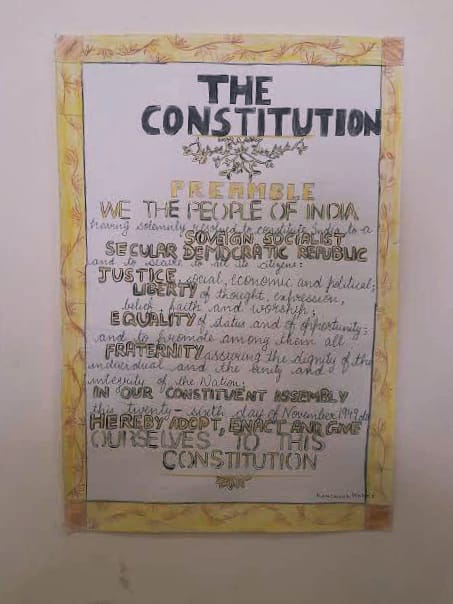 THE
CONSTITUTION
PREAMBLE
WE THE PEOPLE OF INDIA
having solemnly resolved to constitute India to a
SOVEIGN SOCIALIST
SECULAR DEMOCRATIC REPUBLIC
and to all its citizens:
JUSTICE, social, economic and political;
LIBERTY of thought, expression,
belief, faith and worship;
EQUALITY of status and of opportunity;
and to promote among them all
FRATERNITY assuring the dignity of the
individual and the unity and
integrity of the Nation;
IN OUR CONSTITUENT ASSEMBLY
this twenty-sixth day of November 1949 do
HEREBY ADOPT, ENACT AND GIVE
OURSELVES TO THIS
CONSTITUTION